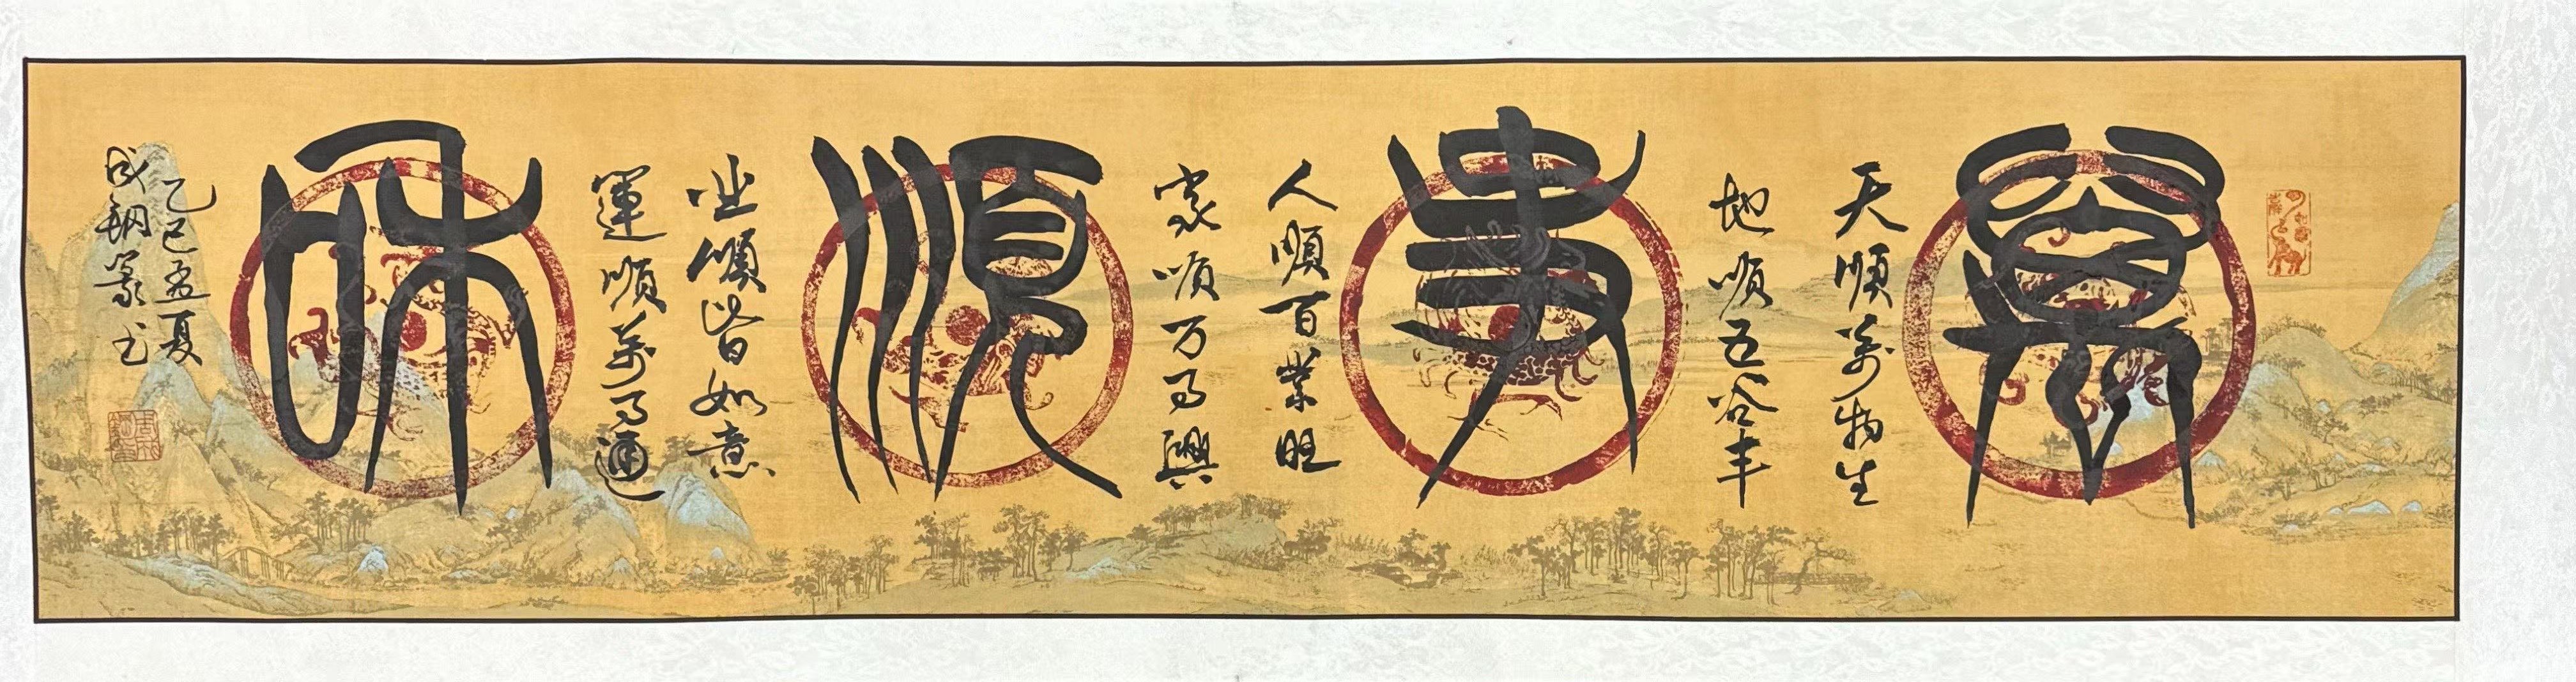 萬
天順萬物生
地順五谷丰
事
人順百業旺
家順万事興
順
业順皆如意
運順萬事通
和
乙巳孟夏
成钢篆书